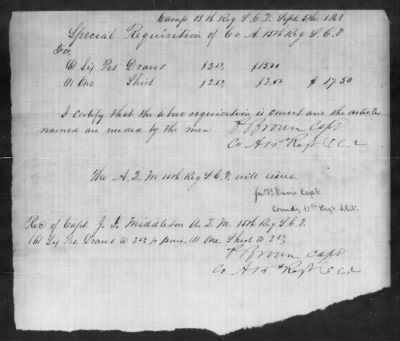 Camp 15th Reg S.C.V. Sept 5th 1863
Special Requisition of Co A 15th Reg S.C.V.
For
(6) Six Prs Draws $2.50 $15.00
(1) One Shirt $2.50 $2.50 $17.50
I certify that the above requisition is correct and the articles
named are needed by the men
Brown Capt
Co A 15th Regt S.C.V
The A.Q.M. 15th Reg S.C.V. will issue
Jno B Davis Capt
Comdg 15th Regt S.C.V.
Rec of Capt. J. J. Middleton A.Q.M. 15th Reg S.C.V.
(6) Six Prs Draws a 2.50 pr pair. (1) One Shirt a 2.50
Brown Capt
Co A 15th Regt S.C.V